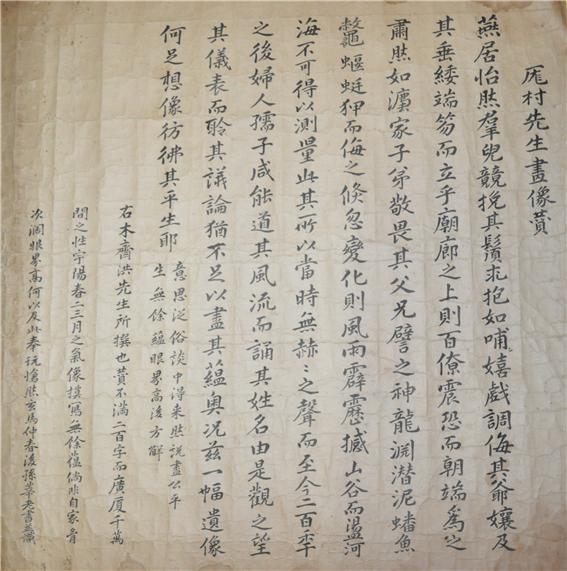 厖村先生畫像贊
燕居怡然羣兒競挽其鬚求抱如哺嬉戲調侮其爺孃及
其垂緌端笏而立乎廟廊之上則百僚震恐而朝端爲之
肅然如㶊家子弟敬畏其父兄譬之神龍淵潜泥蟠魚
鼈蝘蜓狎而侮之倏忽變化則風雨霹靂撼山谷而盪河
海不可得以測量此其所以當時無赫〻之聲而至今二百季
之後婦人孺子咸能道其風流而誦其姓名由是觀之望
其儀表而聆其議論猶不足以盡其蘊奧况玆一幅遺像
何足想像彷彿其平生耶
意思泛俗談中淂来然說盡公平
生無餘蘊眼界高後方解
右木齋洪先生所撰也贊不滿二百字而廣厦千萬
間之性宇陽春二三月之氣像摸寫無餘蕴倘非自家胷
次濶眼界高何以及此奉玩愴然玄馬仲春後孫